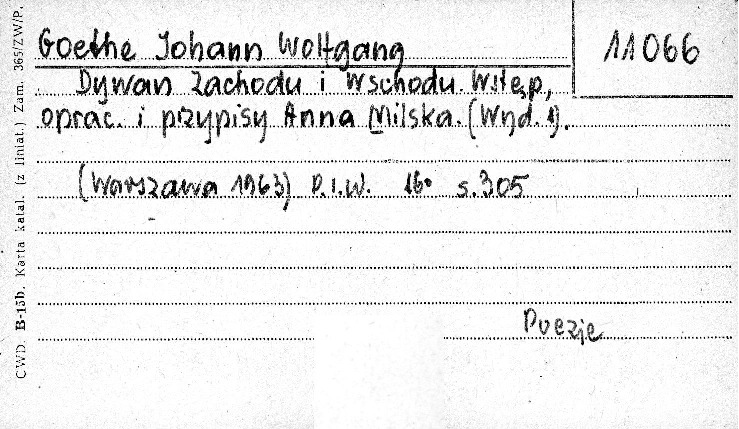 Goethe Johann Wolfgang
11066
Dywan Zachodu i Wschodu. Wstęp,
oprac. i przypisy Anna Milska. (Wyd. 1).
(Warszawa 1963) P.I.W. 16° s. 305
Poezje
CWD. B-15b. Karta katal. (z liniat.) Zam. 365/ZW/P.